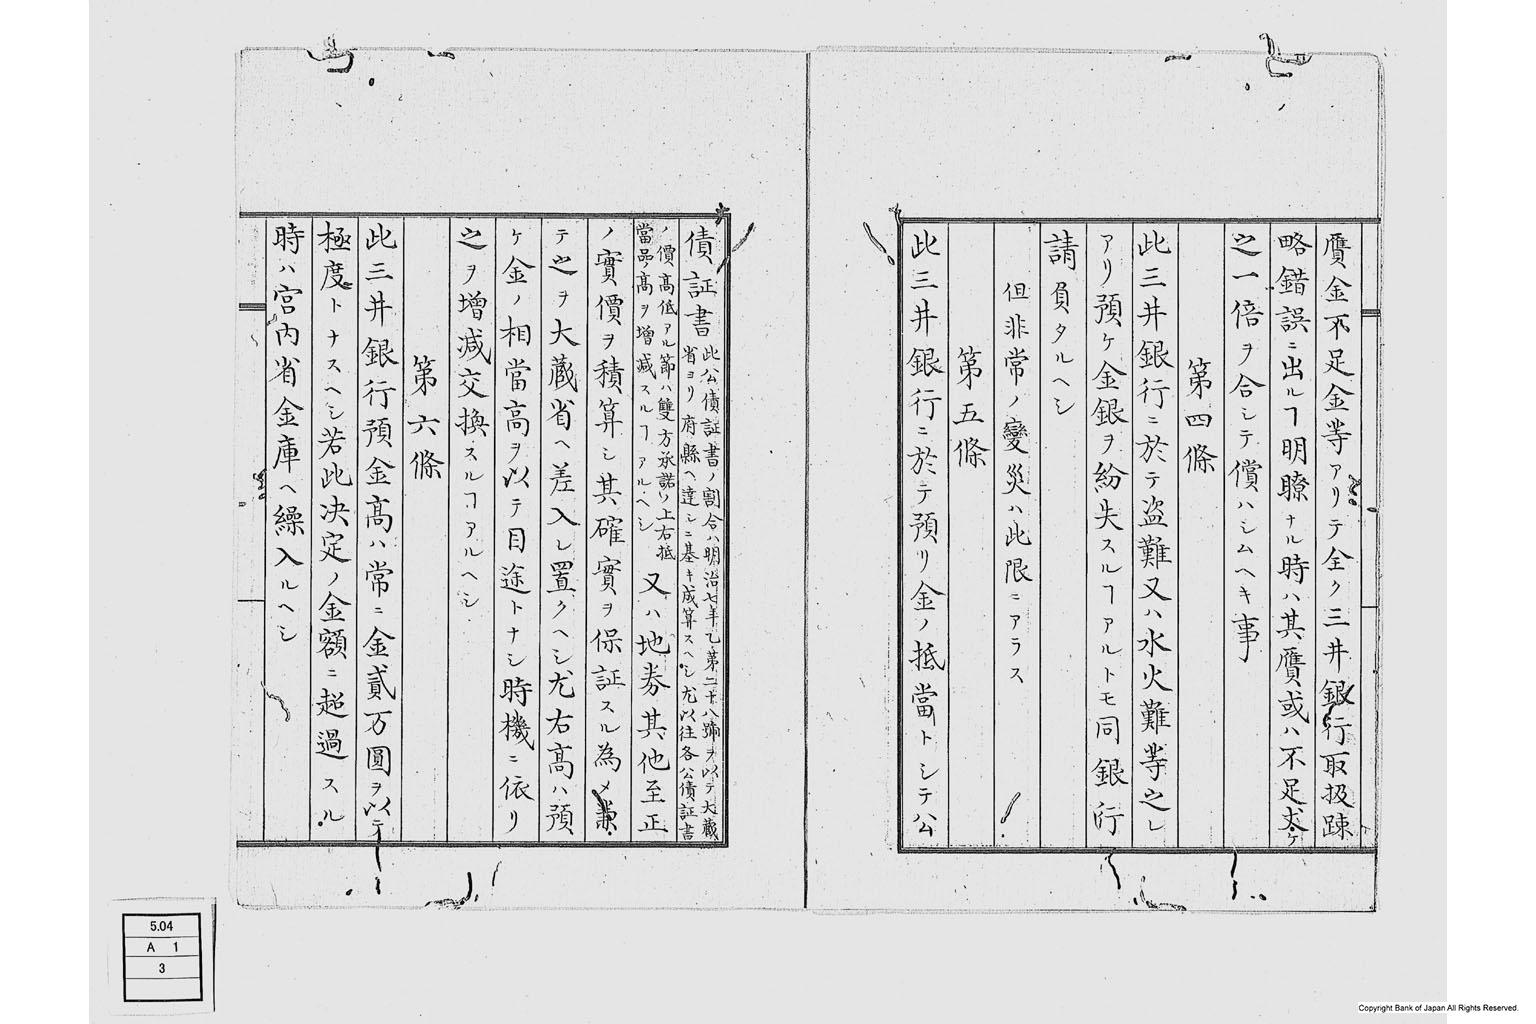 贋金不足金等アリテ全ク三井銀行取扱踈
略錯誤ニ出ルヿ明瞭ナル時ハ其贋或ハ不足丈ケ
之一倍ヲ合シテ償ハシムヘキ事
第四條
此三井銀行ニ於テ盗難又ハ水火難等之レ
アリ預ケ金銀ヲ紛失スルヿアルトモ同銀行
請負タルヘシ
但非常ノ變災ハ此限ニアラス
第五條
此三井銀行ニ於テ預リ金ノ抵當トシテ公
債証書
此公債証書ノ割合ハ明治七年乙第二十八號ヲ以テ大蔵
省ヨリ府縣ヘ達シニ基キ成算スヘシ尤以往各公債証書
ノ價高低アル節ハ雙方承諾ノ上右抵
當品ノ高ヲ増减スルヿアルヘシ
又ハ地券其他至正
ノ實價ヲ積算シ其確實ヲ保証スル為メ兼
テ之ヲ大蔵省ヘ差入レ置クヘシ尤右高ハ預
ケ金ノ相當高ヲ以テ目途トナシ時機ニ依リ
之ヲ増减交換スルヿアルヘシ
第六條
此三井銀行預金高ハ常ニ金貳万圓ヲ以テ
極度トナスヘシ若此决定ノ金額ニ超過スル
時ハ宮内省金庫ヘ繰入ルヘシ
5.04
A 1
3
Copyright Bank of Japan All Rights Reserved.